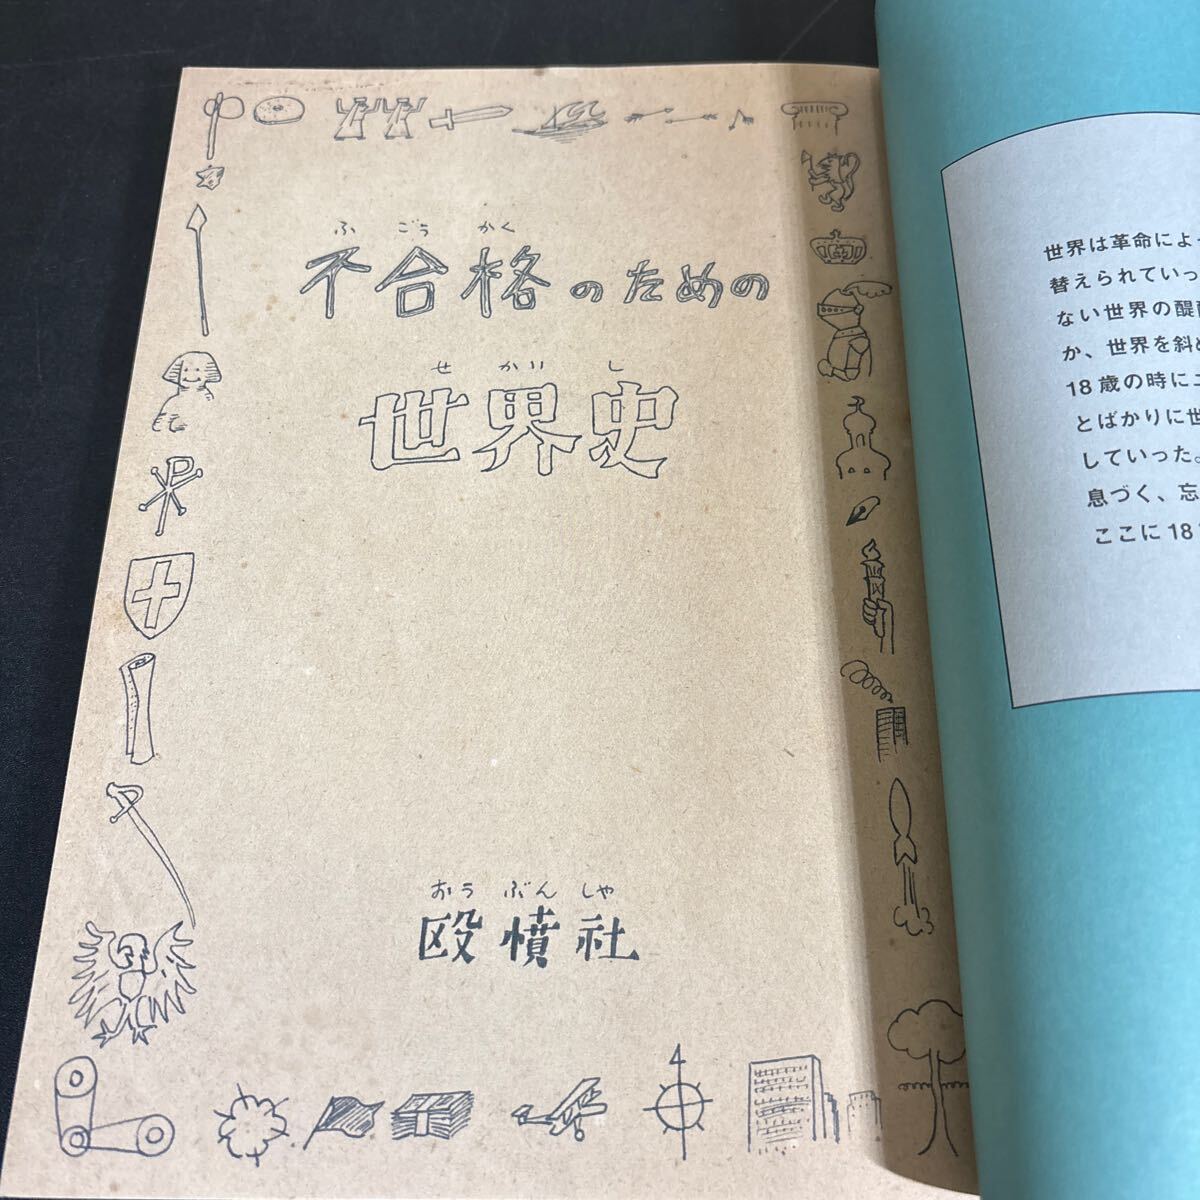 ふごうかく
不合格のための
せかいし
世界史
おうぶんしゃ
殴憤社
世界は革命によっ
替えられていっ
ない世界の醍醐
か、世界を斜め
18歳の時に
とばかりに世
していった。
息づく、忘
ここに18